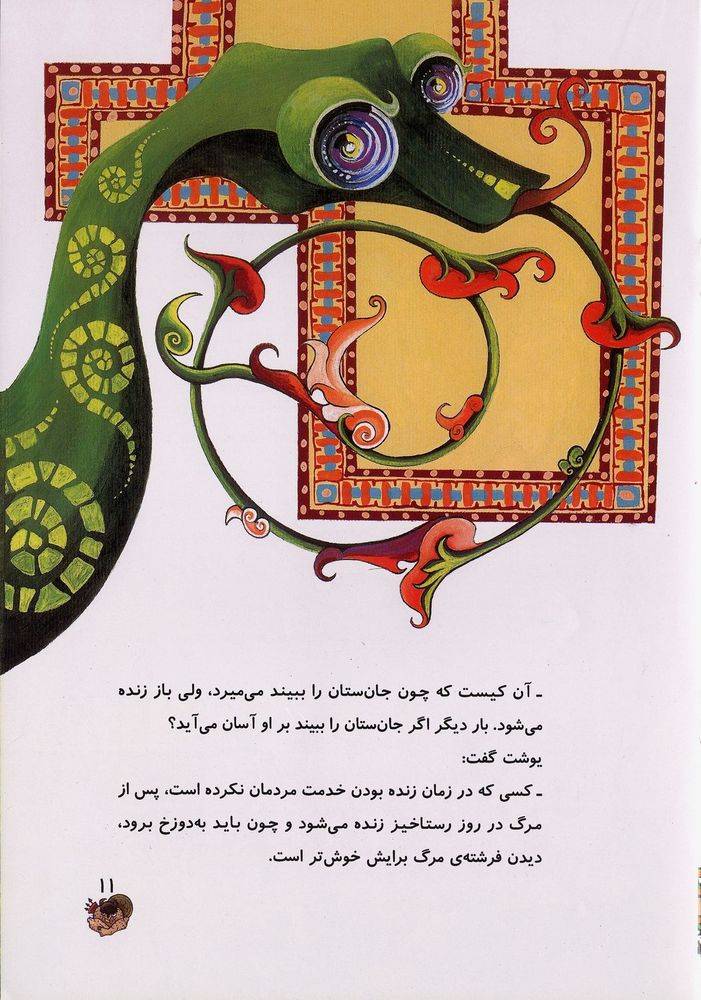 ـ آن کیست که چون جان‌ستان را ببیند می‌میرد، ولی باز زنده
می‌شود. بار دیگر اگر جان‌ستان را ببیند بر او آسان می‌آید؟
یوشت گفت:
ـ کسی که در زمان زنده بودن خدمت مردمان نکرده است، پس از
مرگ در روز رستاخیز زنده می‌شود و چون باید به‌دوزخ برود،
دیدن فرشته‌ی مرگ برایش خوش‌تر است.
۱۱